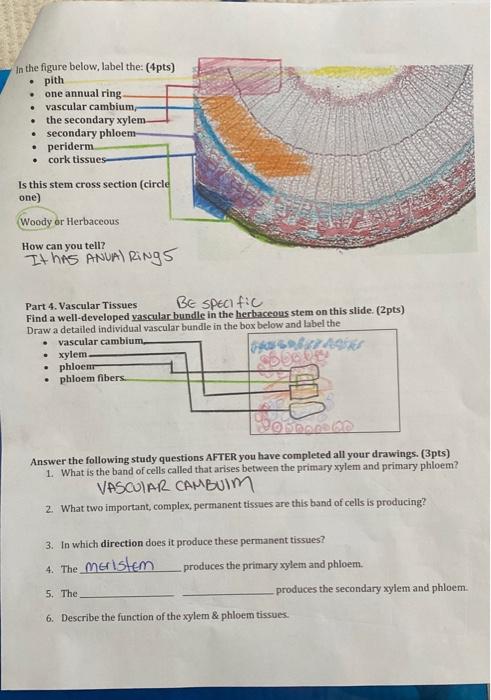 In the figure below, label the: (4pts)
• pith
• one annual ring
• vascular cambium,
• the secondary xylem
• secondary phloem
• periderm
• cork tissues
Is this stem cross section (circle
one)
Woody or Herbaceous
How can you tell?
It hAS ANUAl RiNgS
Part 4. Vascular Tissues
BE SPECIfic
Find a well-developed vascular bundle in the herbaceous stem on this slide. (2pts)
Draw a detailed individual vascular bundle in the box below and label the
• vascular cambium,
• xylem
• phloem
• phloem fibers.
Answer the following study questions AFTER you have completed all your drawings. (3pts)
1. What is the band of cells called that arises between the primary xylem and primary phloem?
VASCUlAR CAMBUIM
2. What two important, complex, permanent tissues are this band of cells is producing?
3. In which direction does it produce these permanent tissues?
4. The meristem produces the primary xylem and phloem.
5. The ____________ ____________ produces the secondary xylem and phloem.
6. Describe the function of the xylem & phloem tissues.